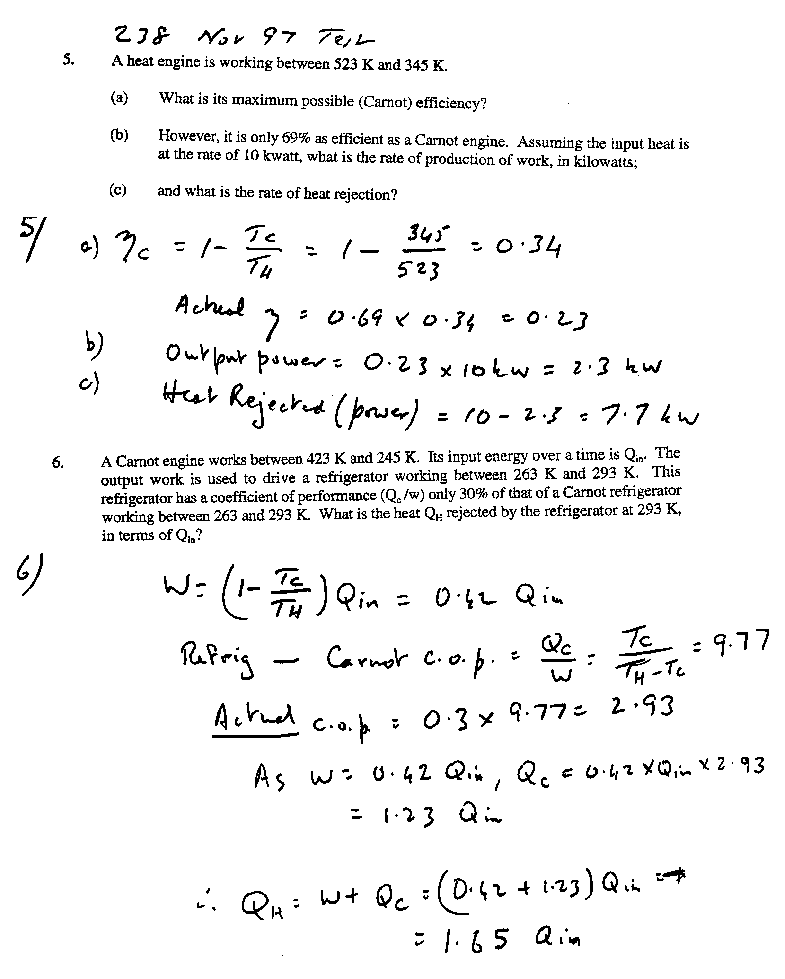 238 Nov 97 Test
5. A heat engine is working between 523 K and 345 K.
(a) What is its maximum possible (Carnot) efficiency?
(b) However, it is only 69% as efficient as a Carnot engine. Assuming the input heat is
at the rate of 10 kwatt, what is the rate of production of work, in kilowatts;
(c) and what is the rate of heat rejection?
5/ a) η_c = 1 - T_c/T_H = 1 - 345/523 = 0.34
Actual η = 0.69 × 0.34 = 0.23
b) Output power = 0.23 × 10 kw = 2.3 kw
c) Heat Rejected (power) = 10 - 2.3 = 7.7 kw
6. A Carnot engine works between 423 K and 245 K. Its input energy over a time is Q_in. The
output work is used to drive a refrigerator working between 263 K and 293 K. This
refrigerator has a coefficient of performance (Q_c/w) only 30% of that of a Carnot refrigerator
working between 263 and 293 K. What is the heat Q_H rejected by the refrigerator at 293 K,
in terms of Q_in?
6) W = (1 - T_c/T_H) Q_in = 0.42 Q_in
Refrig — Carnot c.o.p. = Q_c/W = T_c/(T_H - T_c) = 9.77
Actual c.o.p. = 0.3 × 9.77 = 2.93
As W = 0.42 Q_in, Q_c = 0.42 × Q_in × 2.93
= 1.23 Q_in
∴ Q_H = W + Q_c = (0.42 + 1.23) Q_in
= 1.65 Q_in